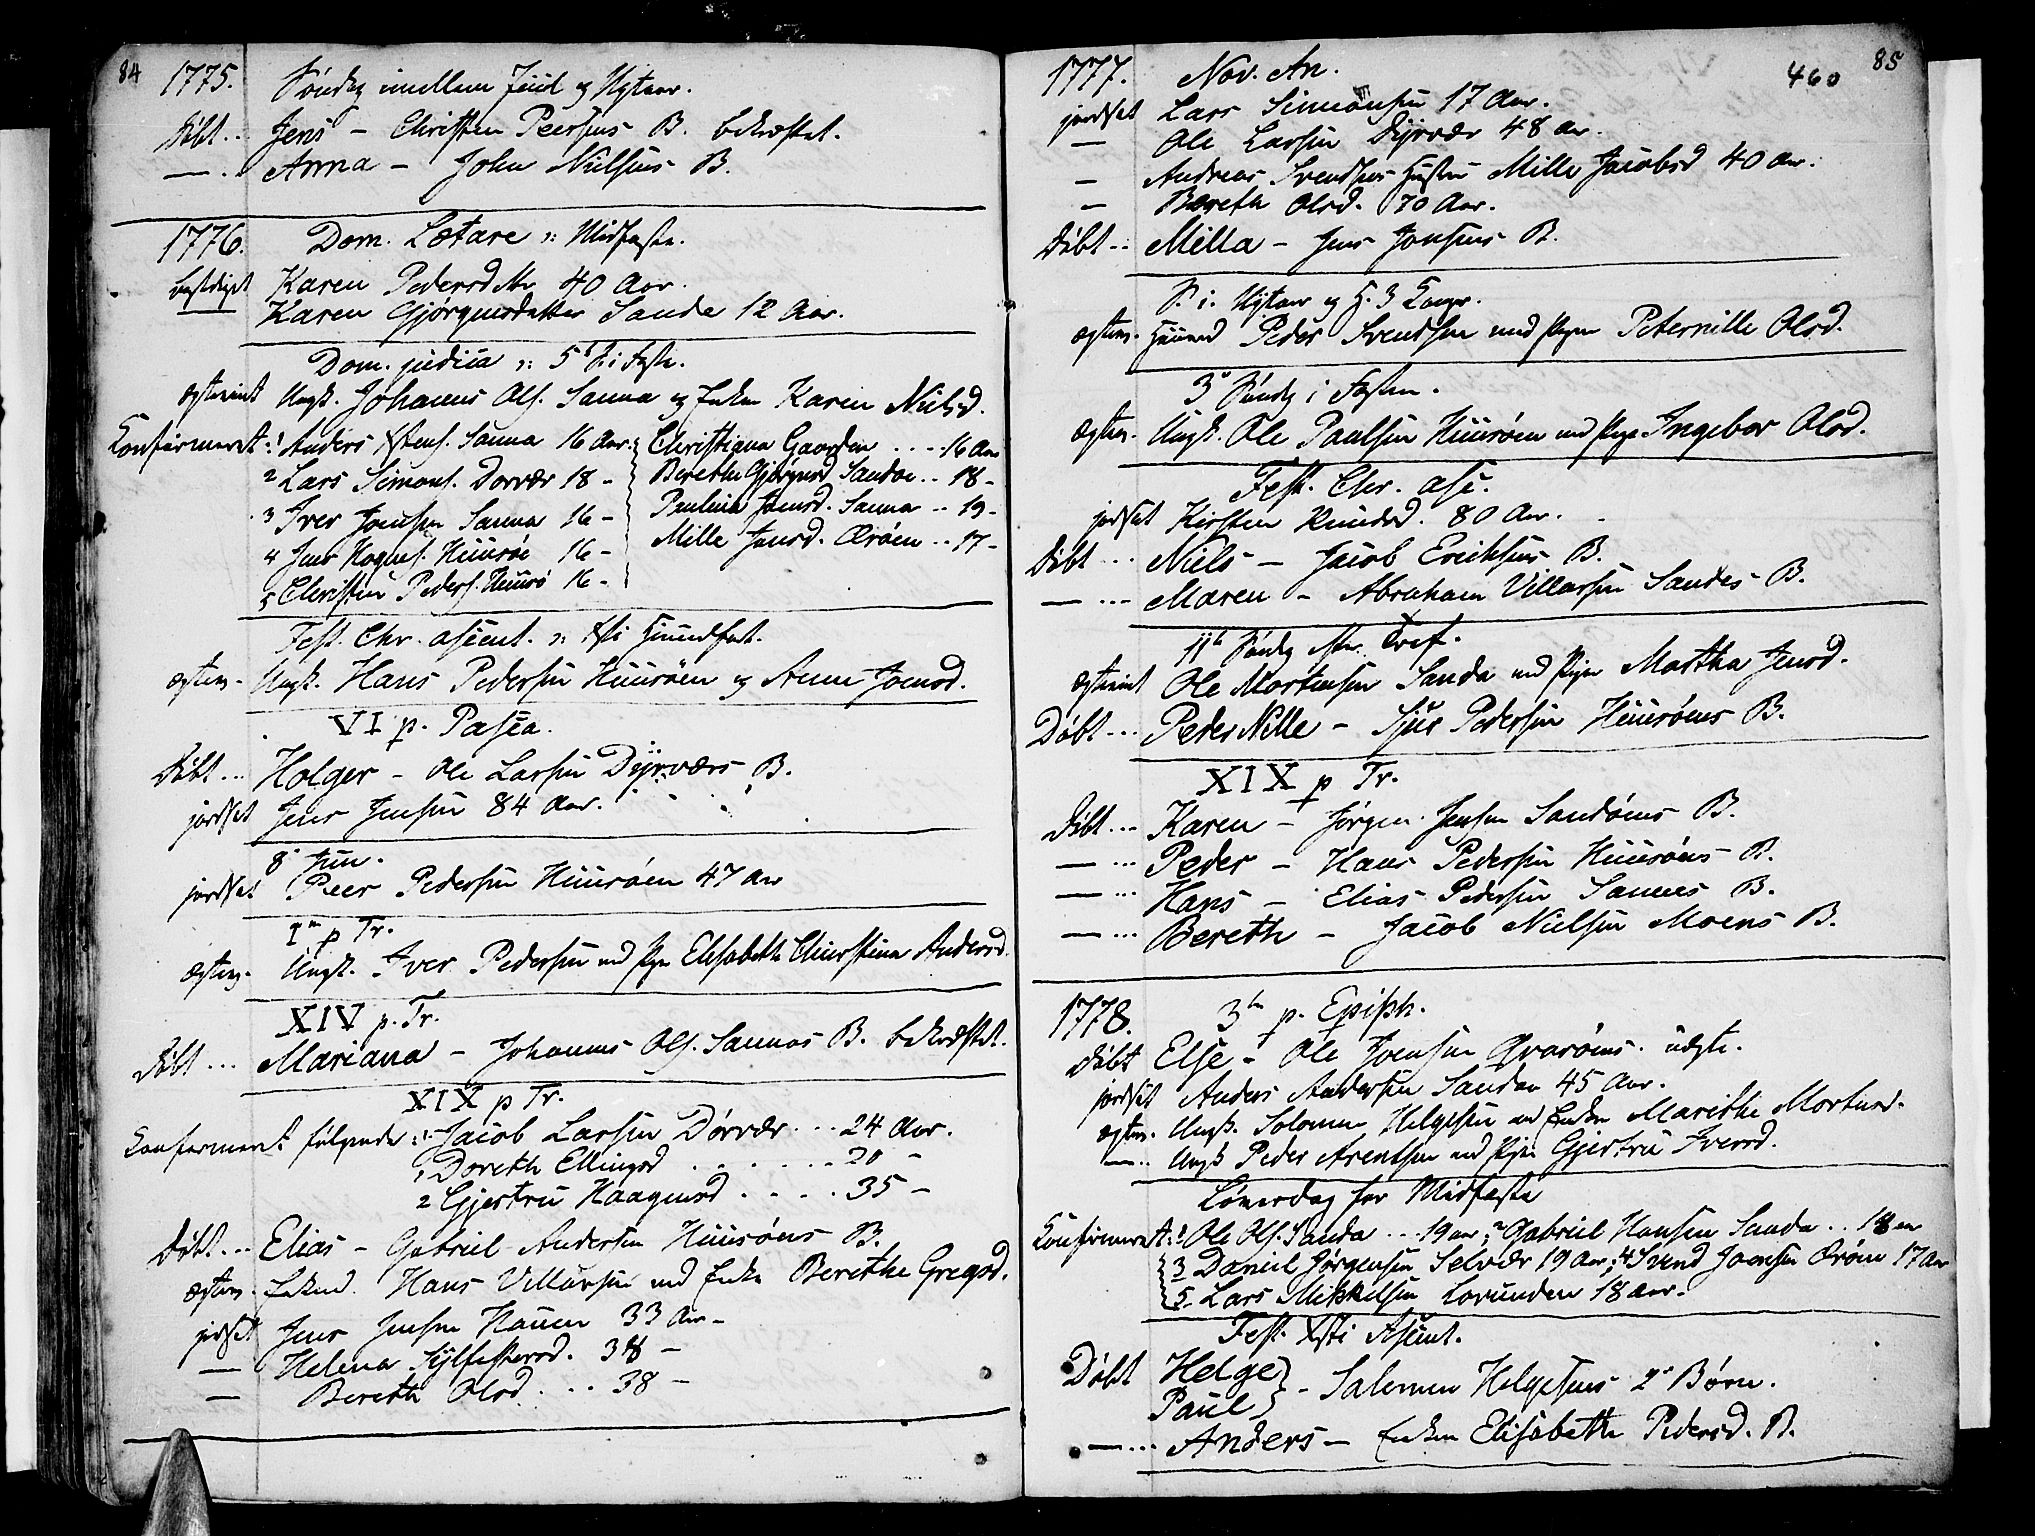 84
1775. Söndag imellem Juul og Nytaar.
Döbt .. Jens - Christen Peersens B. bekræftet.
— . Anna - John Nielsens B.
1776. Dom. Lætare ɔ: Midfaste.
Karen Pedersdtr 40 Aar.
Karen Gjörgensdatter Sanda 12 Aar.
Dom. judica ɔ: 5 S. i Faste.
Ungk. Johannes Ols. Sanna og Enken Karen Nielsd.
Konfirmeret: 1 Anders Xstens. Sanna 16 Aar. Christiana Gaarden .... 16 Aar
2 Lars Simons. Dorvær 18 - Berethe Gjörgensd Sandae .. 18 -
3 Iver Joensen Sanna 16 - Paulina Jonsd. Sanna .. 19 -
4 Jens Hognes. Huusöe 16 - Mille Jensd. Oröen .. 17 -
5 Christen Peders. Huusö 16 -
Fest. Chr. ascent. ɔ: Xti Himmelfart.
Ungk. Hans Pedersen Huusöen og Anne Joensd.
VI p. Pasca.
Döbt ... Holger - Ole Larsen Dyrværs B.
jordset Jens Jensen 84 Aar.
8 Jun.
jordset Peer Pedersen Huusöen 47 Aar
I p Tr.
Ungk. Iver Pedersen med Pige Elisabeth Christina Andersd.
XIV p. Tr.
Döbt ... Mariana - Johannes Ols. Sannas B. bekræftet.
XIX p Tr.
Konfirmeret følgende: 1 Jacob Larsen Dörvær ... 24 Aar.
1 Doreth Ellingsd ....... 20 -
2 Gjertru Haagensd .... 35 -
Döbt ... Elias - Gabriel Andersen Huusöens B.
Enkem. Hans Villumsen med Enke Berethe Gregod.
jordset Jens Jensen Hauen 33 Aar -
— Helena Sylfestersd. 38 -
— Bereth Olsd ... 38 -
460 85
1777. Nov. An.
jordset Lars Simonsen 17 Aar.
— Ole Larsen Dyrvær 48 Aar.
— Andreas Svendsens Hustru Mille Jacobsd 40 Aar.
— Bereth Olsd. 70 Aar.
Döbt .. Milla - Jens Jonsens B.
S. i. Nytaar og H. 3 Konger.
Peder Svendsen med Pigen Peternille Olsd.
3 Söndag i Fasten.
Ungk. Ole Paulsen Huusöen med Pige Ingebor Olsd.
Fest. Chr. asc.
jordset Kirsten Knudsd. 80 Aar.
Döbt ... Niels - Jacob Eriksens B.
— ... Maren - Abraham Villassen Sandes B.
11 Söndag efter Tref.
Ole Mortensen Sanda med Pigen Martha Jensd.
Döbt ... PederNille - Sjur Pedersen Huusöens B.
XIX p Tr.
Döbt ... Karen - Jörgen Jensen Sandöens B.
— ... Peder - Hans Pedersen Huusöens B.
— ... Hans - Elias Pedersen Sannes B.
— ... Bereth - Jacob Nielsen Moens B.
1778. 3 p. Epiph.
Döbt Else - Ole Joensen Qvaröens uægte.
jordset Anders Andersen Sandae 45 Aar.
Ungk. Solomon Helgesen med Enken Marithe Mortensd.
— .. Ungk Peder Arentsen med Pigen Gjertru Iversd.
Löverdag for Midfaste
Konfirmeret: 1 Ole Ols. Sanda ... 19 aar; 2 Gabriel Hansen Sanda .. 18 aar
3 Daniel Jörgensen Selvær 19 Aar; 4 Svend Joensen Oröen 17 Aar
5. Lars Mikkelsen Lovunden 18 Aar.
Fest. Xsti Ascent.
Döbt Helge
Paul - Salomon Helgesens 2 Börn.
— ... Anders - Enken Elisabethe Pedersd. B.